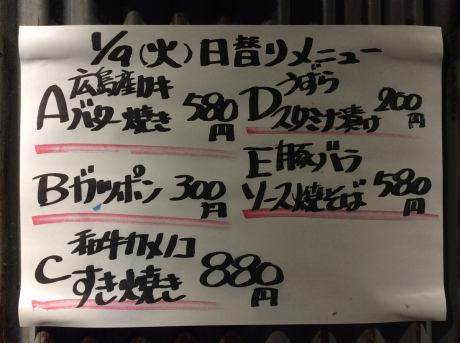 1/9(火)日替りメニュー
A 広島産カキ
バター焼き 580円
B ガツポン 300円
C 和牛カメノコ
すき焼き 880円
D うずら
スタミナ漬け 200円
E 豚バラ
ソース焼そば 580円